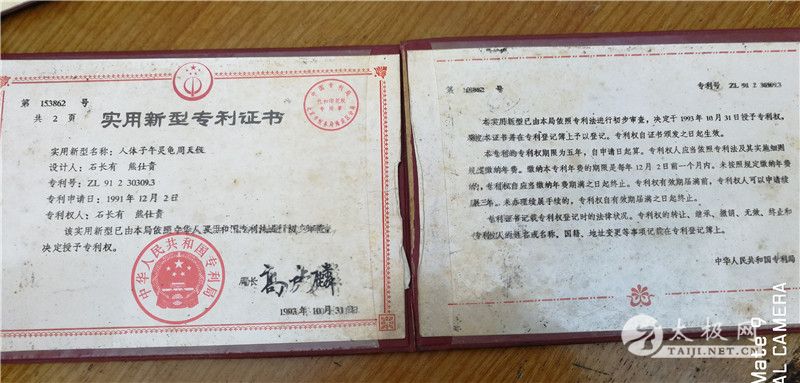 第 153862 号
共 2 页
实用新型专利证书
中国专利局
实用新型名称:人体子午灵龟周天仪
设计人:石长有 熊仕贵
专利号:ZL 91 2 30309.3
专利申请日:1991年12月2日
专利权人:石长有 熊仕贵
该实用新型已由本局依照中华人民共和国专利法进行初步审查,
决定授予专利权。
中华人民共和国专利局
局长 高卢麟
1993年10月31日
第 153862 号
专利号 ZL 91 2 30309.3
本实用新型已由本局依照专利法进行初步审查,决定于1993年10月31日授予专利权,
颁发本证书并在专利登记簿上予以登记。专利权自证书颁发之日起生效。
本专利的专利权期限为五年,自申请日起算。专利权人应当依照专利法及其实施细则
规定缴纳年费。缴纳本专利年费的期限是每年12月2日前一个月内。未按照规定缴纳年费
的,专利权自应当缴纳年费期满之日起终止。专利权有效期届满前,专利权人可以申请续
展三年。未办理续展手续的,专利权自有效期届满之日起终止。
专利证书记载专利权登记时的法律状况。专利权的转让、继承、撤销、无效、终止和
专利权人的姓名或名称、国籍、地址变更等事项记载在专利登记簿上。
中华人民共和国专利局
太极网
TAIJI.NET.CN
Mate 9
AL CAMERA